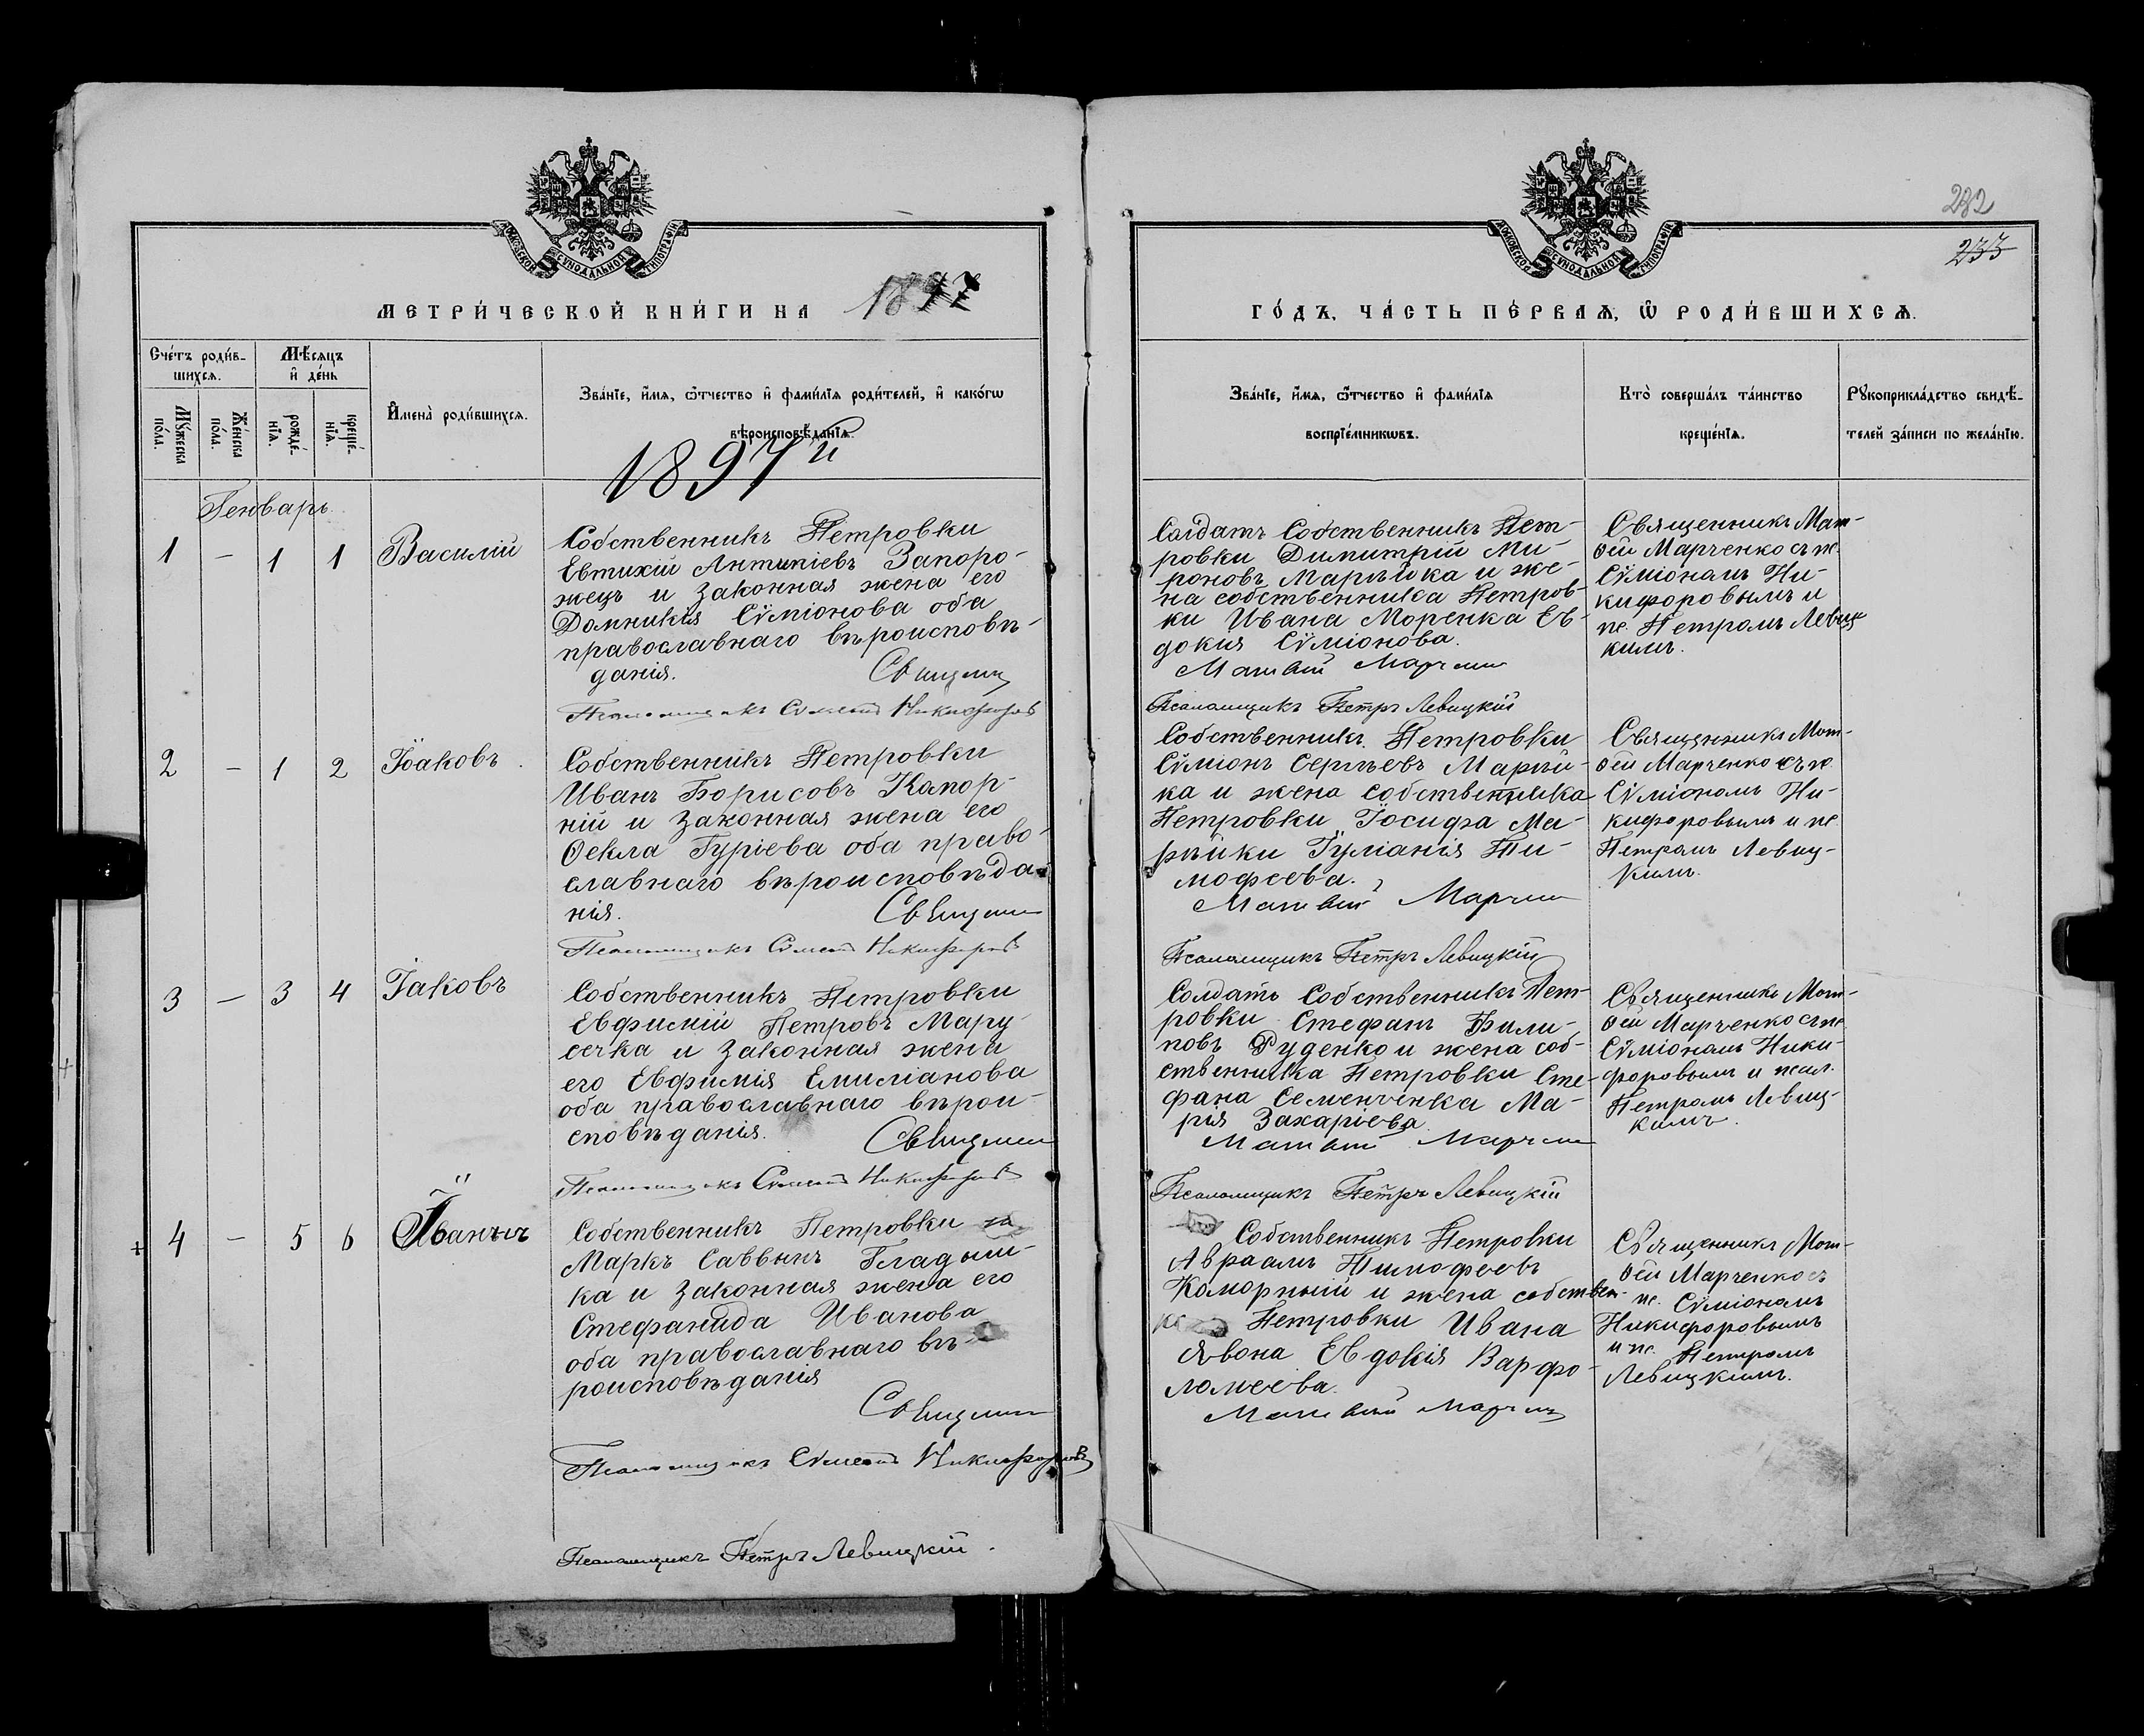 232
233
МОСКОВСКОЙ СѴНОДАЛЬНОЙ ТИПОГРАФІИ
МОСКОВСКОЙ СѴНОДАЛЬНОЙ ТИПОГРАФІИ
МЕТРИ́ЧЕСКОЙ КНИ́ГИ НА 1897
ГО́ДЪ, ЧА́СТЬ ПЕ́РВАѦ, Ѡ҆ РОДИ́ВШИХСѦ.
Сче́тъ роди́в-
шихсѧ.
Мѣ́сѧцъ
и҆ де́нь
Мꙋ́жеска
по́ла.
Же́нска
по́ла.
рожде́-
нїѧ.
креще́-
нїѧ.
И҆мена̀ роди́вшихсѧ.
Зва́нїе, и҆́мѧ, ѻ҆́тчество и҆ фами́лїѧ роди́телей, и҆ како́гѡ
вѣроисповѣ́данїѧ.
Зва́нїе, и҆́мѧ, ѻ҆́тчество и҆ фами́лїѧ
воспрїе́мникѡвъ.
Кто̀ соверша́лъ та́инство
креще́нїѧ.
Рꙋкоприкла́дство свидѣ́-
телей за́писи по жела́нїю.
1897й
Генварь
1 – 1 1 Василій
Собственникъ Петровки
Евтихій Антипіевъ Запоро-
жецъ и законная жена его
Домникія Сѵміонова оба
православнаго вѣроисповѣ-
данія.
Псаломщикъ Сѵмеонъ Никифоровъ
Солдатъ Собственникъ Пет-
ровки Димитрій Ми-
роновъ Марѣйка и же-
на собственника Петров-
ки Ивана Моренка Ев-
докия Сѵміонова.
Матвій
Псаломщикъ Петръ Левицкій
Священникъ Мат-
ѳей Марченко съ пс.
Сѵміономъ Ни-
кифоровымъ и
пс. Петромъ Левиц
кимъ.
2 – 1 2 Іаковъ.
Собственникъ Петровки
Иванъ Борисовъ Камор-
ній и законная жена его
Ѳекла Гуріева оба право-
славнаго вѣроисповѣда-
нія.
Псаломщикъ Сѵмеонъ Никифоровъ
Собственникъ Петровки
Сѵміонъ Сергѣевъ Марѣй-
ка и жена собственника
Петровки Іосифа Ма-
рѣйки Іуліанія Ти-
мофеева.
Матвій
Псаломщикъ Петръ Левицкій
Священникъ Мат-
ѳей Марченко съ пс
Сѵміономъ Ни-
кифоровымъ и пс.
Петромъ Левиц-
кимъ.
3 – 3 4 Іаковъ
Собственникъ Петровки
Евфимій Петровъ Мару-
сечка и законная жена
его Евфимія Емиліанова
оба православнаго вѣрои-
сповѣданія.
Псаломщикъ Сѵмеонъ Никифоровъ
Солдатъ Собственникъ Пет-
ровки Стефанъ Фили-
повъ Руденко и жена соб-
ственника Петровки Сте-
фана Семенченка Ма-
рія Захаріева
Матвій
Псаломщикъ Петръ Левицкій
Священникъ Мат-
ѳей Марченко съ пс.
Сѵміономъ Ники-
форовымъ и псал.
Петромъ Левиц-
кимъ.
4 – 5 6
Собственникъ Петровки
Маркъ Саввинъ Гладыш-
ка и законная жена его
Стефанида Иванова
оба православнаго вѣ-
роисповѣданія
Псаломщикъ Сѵмеонъ Никифоровъ
Псаломщикъ Петръ Левицкій.
Собственникъ Петровки
Авраамъ Тимофеевъ
Каморный и жена собствен-
Петровки Ивана
Явона Евдокія Варфо-
ломеева.
Матвій
Священникъ Мат-
ѳей Марченко съ
пс. Сѵміономъ
Никифоровымъ
и пс. Петромъ
Левицкимъ.